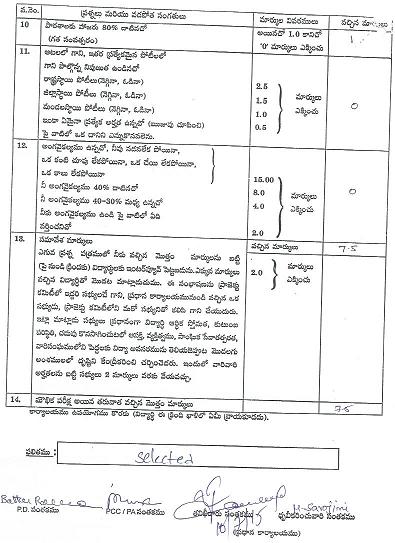 వ.నెం. ప్రశ్నలు మరియు వడపోత సంగతులు మార్కుల వివరములు వచ్చిన మార్కులు
10 పాఠశాలకు హాజరు 80% దాటినదో అయినచో 1.0 కానిచో 1
(గత సంవత్సరం) '0' మార్కులు ఎక్కించు
11. ఆటలలో గాని, ఇతర ప్రత్యేకమైన పోటీలలో
గాని పాల్గొన్న నిపుణత ఉండినదో
రాష్ట్రస్థాయి పోటీలు(నెగ్గినా, ఓడినా) 2.5
జిల్లాస్థాయి పోటీలు (నెగ్గినా, ఓడినా) 1.5 మార్కులు 0
మండలస్థాయి పోటీలు (నెగ్గినా, ఓడినా) 1.0 ఎక్కించు
ఇంకా ఏమైనా ప్రత్యేక అర్హత ఉన్నచో (ఋజువు చూపించి) 0.5
పై వాటిలో ఒక దానిని ఎన్నుకొనవలెను.
12. అంగవైకల్యము ఉన్నచో, నీవు నడవలేక పోయినా,
ఒక కంటి చూపు లేకపోయినా, ఒక చేయి లేకపోయినా,
ఒక కాలు లేకపోయినా 15.00
నీ అంగవైకల్యము 40% దాటినచో 8.0 మార్కులు 0
నీ అంగవైకల్యము 40-30% మధ్య ఉన్నచో 4.0 ఎక్కించు
నీకు అంగవైకల్యము ఉండి పై వాటిలో ఏది
వర్తించనిచో 2.0
13. సమావేశ మార్కులు వచ్చిన మార్కులు 7.5
ఎగువ ప్రశ్న పత్రములో నీకు వచ్చిన మొత్తం మార్కులను బట్టి
(పై నుండి క్రిందకు) విద్యార్థులకు ఇంటర్వ్యూస్ పెట్టబడును.ఎక్కువ మార్కులు 2.0 మార్కులు
వచ్చిన విద్యార్థితో మొదట మాట్లాడుదుము. ఈ సంభాషణను ప్రాజెక్టు ఎక్కించు
కమిటీలో ఇద్దరి సభ్యులచే గాని, ప్రధాన కార్యాలయమునుండి వచ్చిన ఒక
సభ్యుడు, ప్రాజెక్టు కమిటీలోని మరో సభ్యునితో కలిసి గాని చేయుదురు.
ఇట్లా మాట్లాడు సభ్యులు ప్రధానంగా విద్యార్థి ఆర్థిక స్తోమత, కుటుంబ
పరిస్థితి, చదువు కొనసాగించుటలో ఆసక్తి, వ్యక్తిత్వము, సాంఘిక సేవాతత్పరత,
వారిసంఘములోని పెద్దలకు విద్యా అవసరమును తెలియజెప్పుట మొదలగు
అంశములలో దృష్టిని కేంద్రీకరించి చర్చించెదరు. ఇందులో వారివారి
అర్హతలను బట్టి సభ్యులు 2 మార్కులు వరకు వేయవచ్చు.
14. మౌఖిక పరీక్ష అయిన తరువాత వచ్చిన మొత్తం మార్కులు 7.5
కార్యాలయము ఉపయోగము కొరకు (విద్యార్థి ఈ క్రింది ఖాళీలో ఏమీ వ్రాయకూడదు).
ఫలితము : selected
P.D. సంతకము PCC / PA సంతకము తనిఖీదారు సంతకము ధృవీకరించువారి సంతకము
M. Sarojini
(ప్రధాన కార్యాలయము)